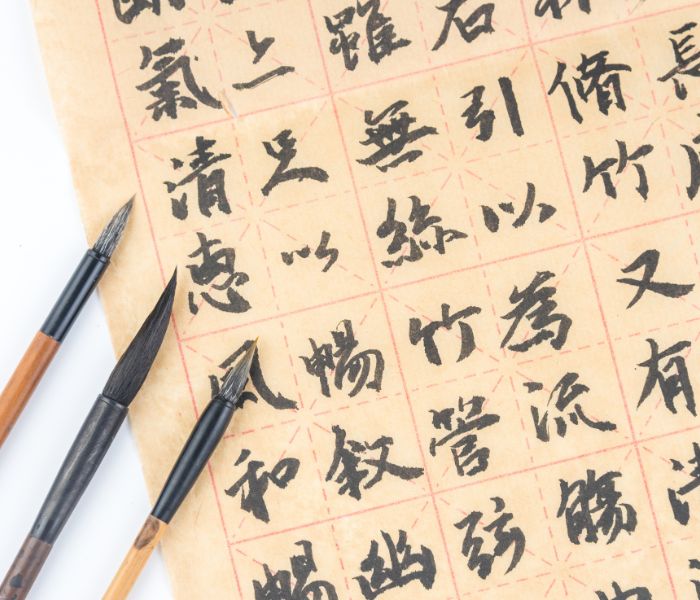 長
脩竹又有清
右引以為流觴曲
雖無絲竹管弦
亦足以暢敘幽
氣清惠風和暢